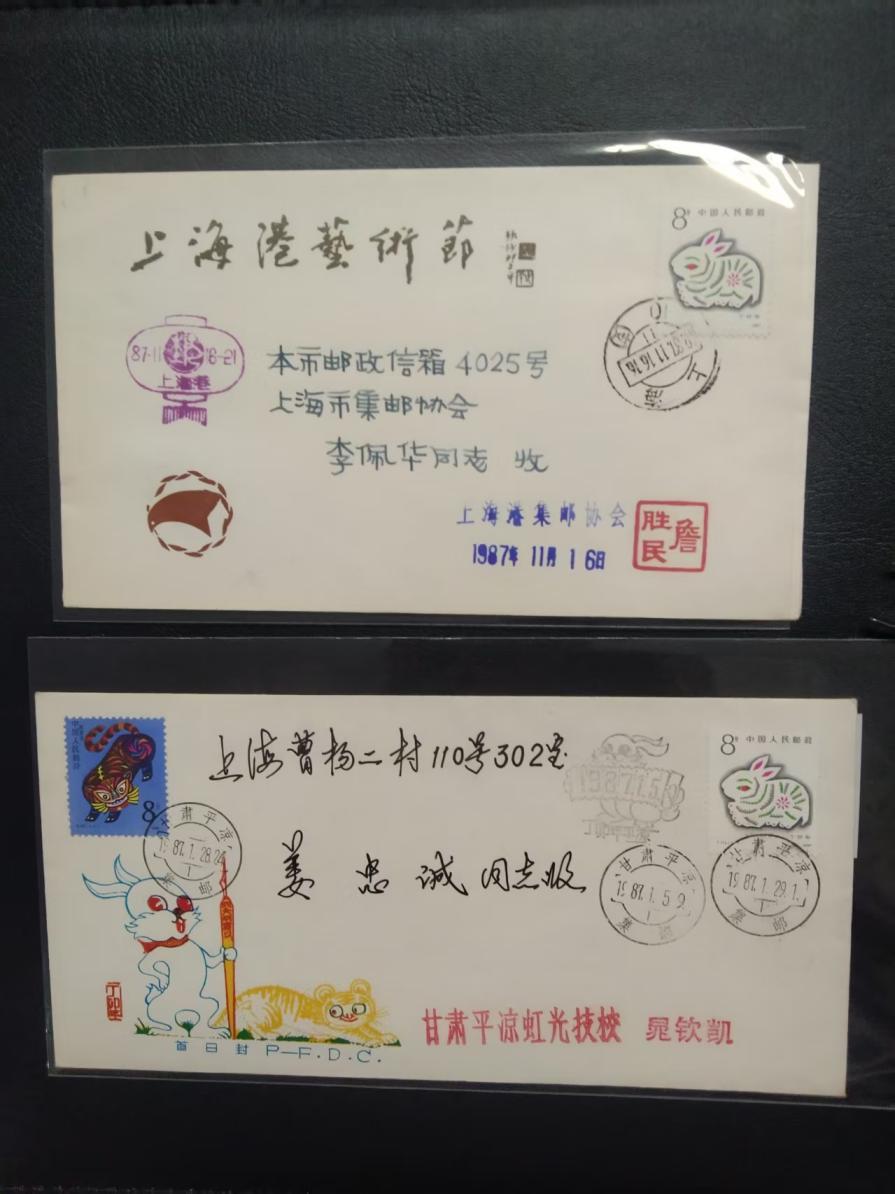 上海港藝術節
8分 中国人民邮政
87·11 16-21
上海港
上海
87.11.16.16
本市邮政信箱4025号
上海市集邮协会
李佩华同志 收
上海港集邮协会
1987年 11月 16日
詹胜民
中国人民邮政
8分
上海曹杨二村110号302室
1987.1.5
8分 中国人民邮政
姜忠诚同志收
甘肃平凉
1987.1.28.24
集邮
甘肃平凉
1987.1.5.9
集邮
甘肃平凉
1987.1.29.1
集邮
丁卯年
首日封 P—F.D.C.
甘肃平凉虹光技校 晁钦凯